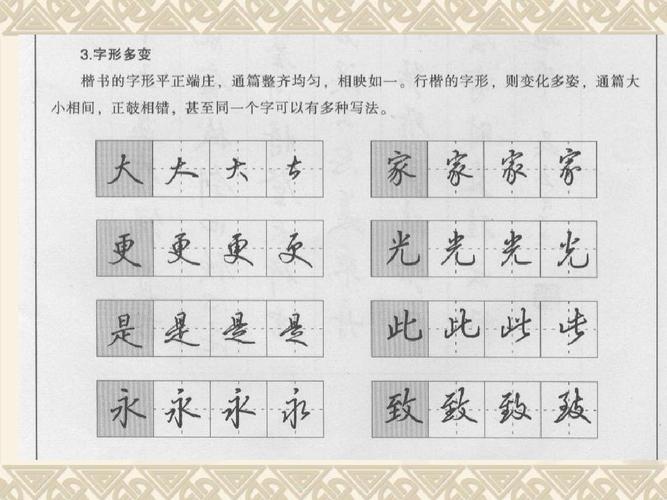 3.字形多变
楷书的字形平正端庄，通篇整齐均匀，相映如一。行楷的字形，则变化多姿，通篇大
小相间，正攲相错，甚至同一个字可以有多种写法。
大大大大 家家家家
更更更更 光光光光
是是是是 此此此此
永永永永 致致致致